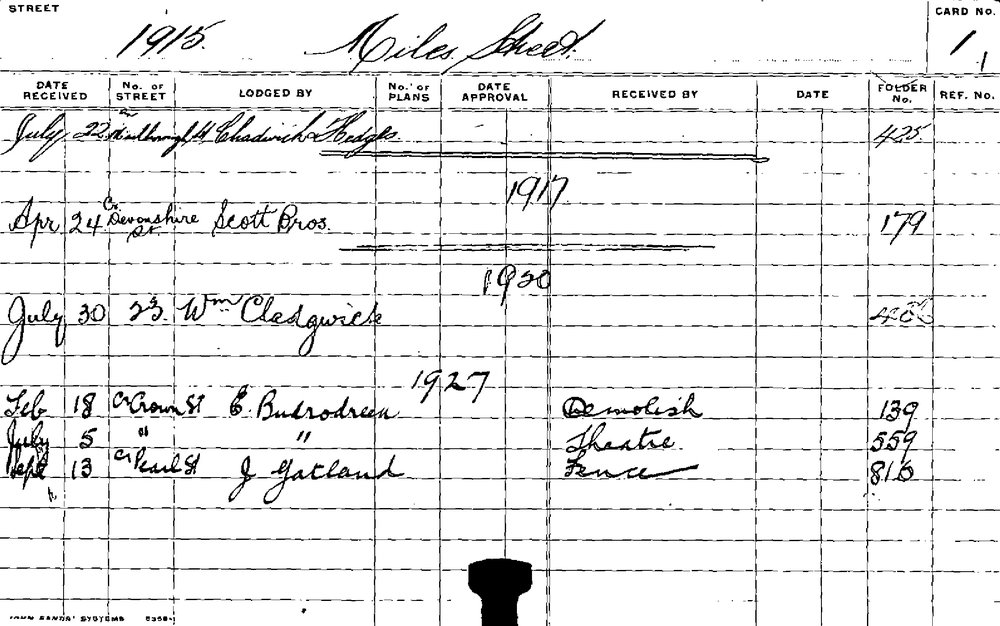 STREET
CARD No.
1915. Miles Street. 1
DATE RECEIVED No. OF STREET LODGED BY No. OF PLANS DATE APPROVAL RECEIVED BY DATE FOLDER No. REF. No.
July 22 Cr Marlborough St Chadwick & Hedges 425
1917
Apr 24 Cr. Devonshire St. Scott Bros. 179
1920
July 30 23 Wm Cladgwick
1927
Feb 18 Cr Crown St E. Budrodreen Demolish 139
July 5 " " Theatre 559
Sept 13 Cr Pearl St J Gatland Fence 816
JOHN SANDS' SYSTEMS